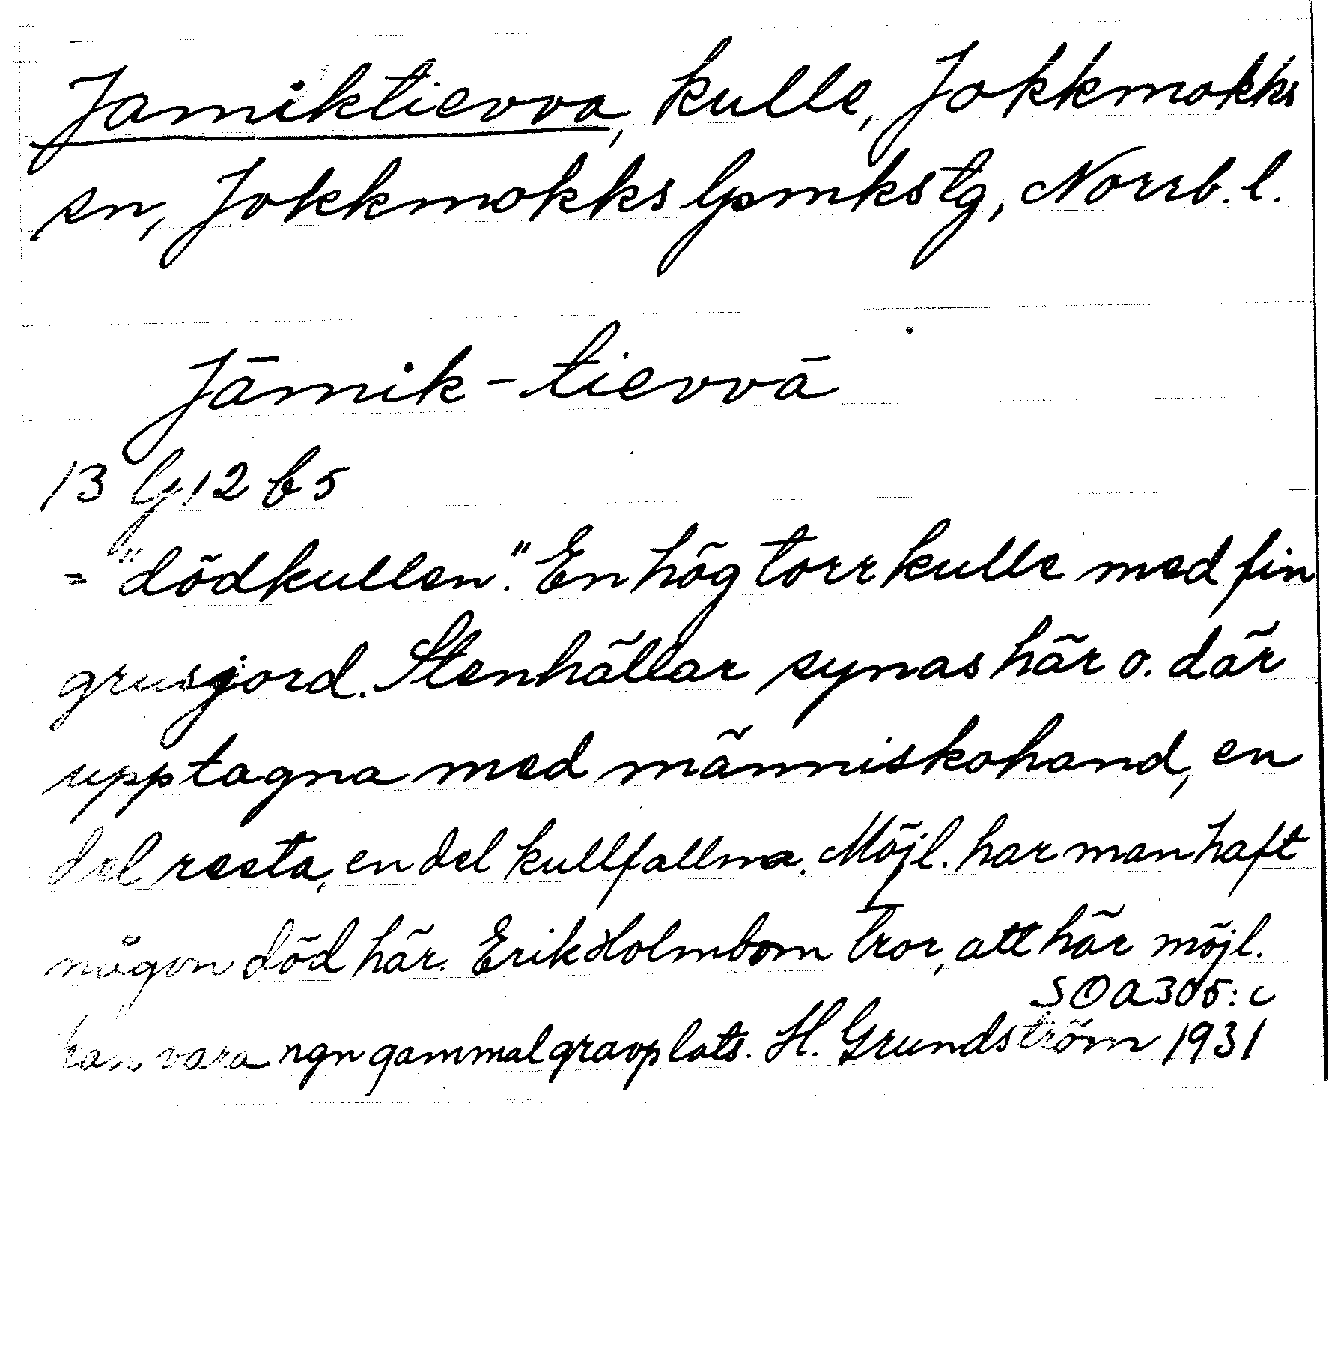 Jamiktievva, kulle, Jokkmokks
sn, Jokkmokks lpmkstg, Norrb. l.
Jāmik-tievvā
13 G 12 b 5
= "dödkullen". En hög torr kulle med fin
grusjord. Stenhällar synas här o. där
upptagna med människohand, en
del resta, en del kullfallna. Möjl. har man haft
någon död här. Erik Holmbom tror, att här möjl.
SOA305:c
kan vara ngn gammal gravplats. H. Grundström 1931